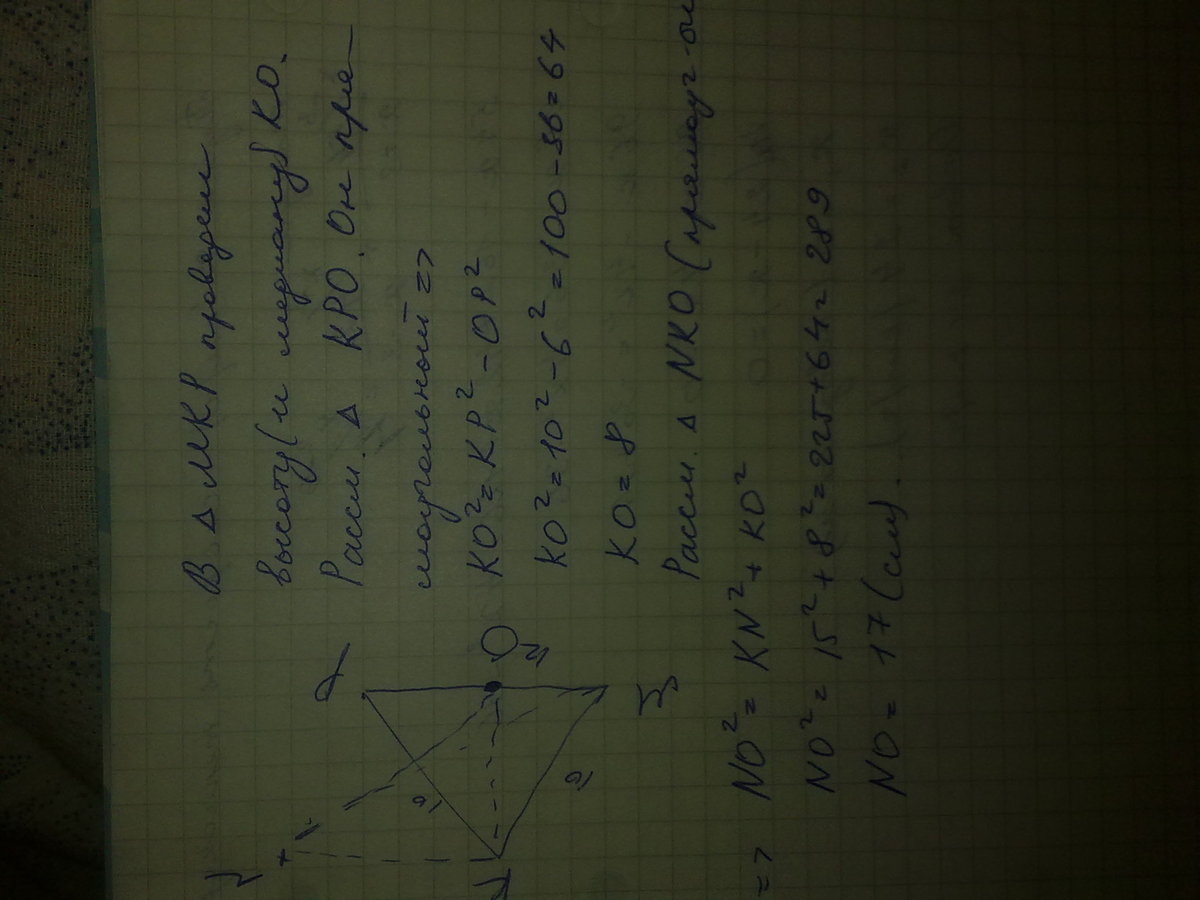 В Δ МКР проведем
высоту (и медиану) КО.
Рассм. Δ КРО. Он пря-
моугольный =>
KO² = KP² - OP²
KO² = 10² - 6² = 100 - 36 = 64
KO = 8
Рассм. Δ NKO (прямоуг-ый
=> NO² = KN² + KO²
NO² = 15² + 8² = 225 + 64 = 289
NO = 17 (см).
P
O
12
10
10